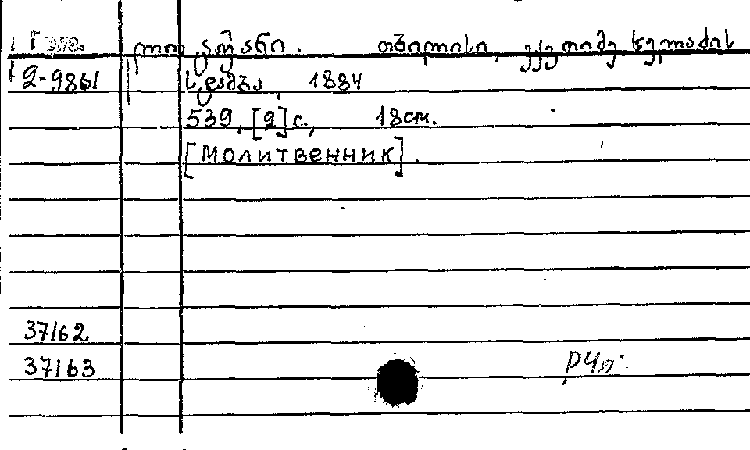 ლოცვანი. თბილისი, ექვთიმე ხელაძის
2-9861 სტამბა, 1884
539, [2] с., 18см.
[Молитвенник].
37162
37163